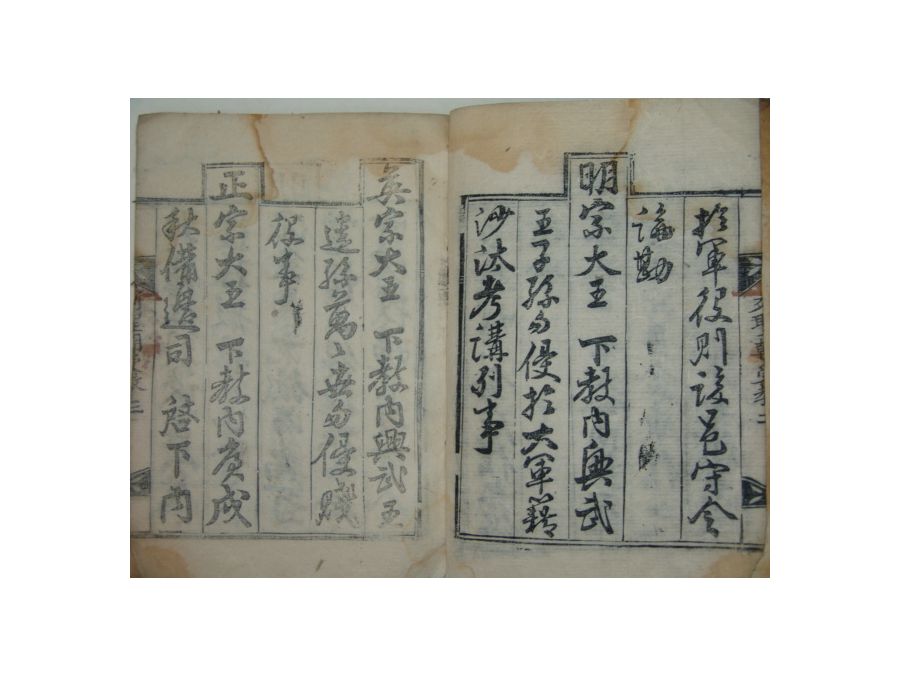 於軍役則該邑守令
論勘
明宗大王 下教內興武
王子孫勿侵於大軍籍
沙汰考講列事
英宗大王 下教內興武王
遠孫萬萬無勿侵賤
役事
正宗大王 下教內 戊
秋備邊司 啓下內